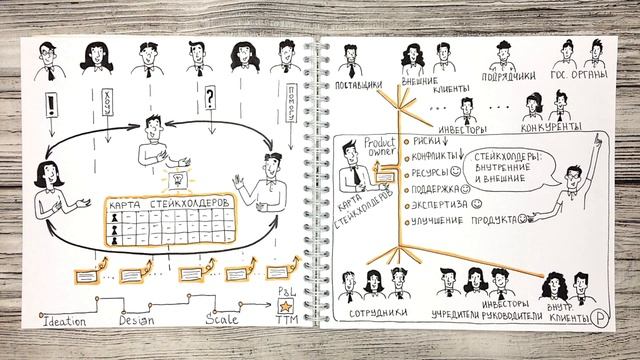 !
ХОЧУ
?
ПОМОГУ
КАРТА СТЕЙКХОЛДЕРОВ
P&L
TTM
Ideation
Design
Scale
ПОСТАВЩИКИ
ВНЕШНИЕ
КЛИЕНТЫ
ПОДРЯДЧИКИ
ГОС. ОРГАНЫ
ИНВЕСТОРЫ
КОНКУРЕНТЫ
Product
owner
КАРТА
СТЕЙКХОЛДЕРОВ
РИСКИ↓
КОНФЛИКТЫ↓
РЕСУРСЫ
ПОДДЕРЖКА
ЭКСПЕРТИЗА
УЛУЧШЕНИЕ ПРОДУКТА
СТЕЙКХОЛДЕРЫ:
ВНУТРЕННИЕ
И ВНЕШНИЕ
СОТРУДНИКИ
УЧРЕДИТЕЛИ
ИНВЕСТОРЫ
РУКОВОДИТЕЛИ
ВНУТР.
КЛИЕНТЫ
P